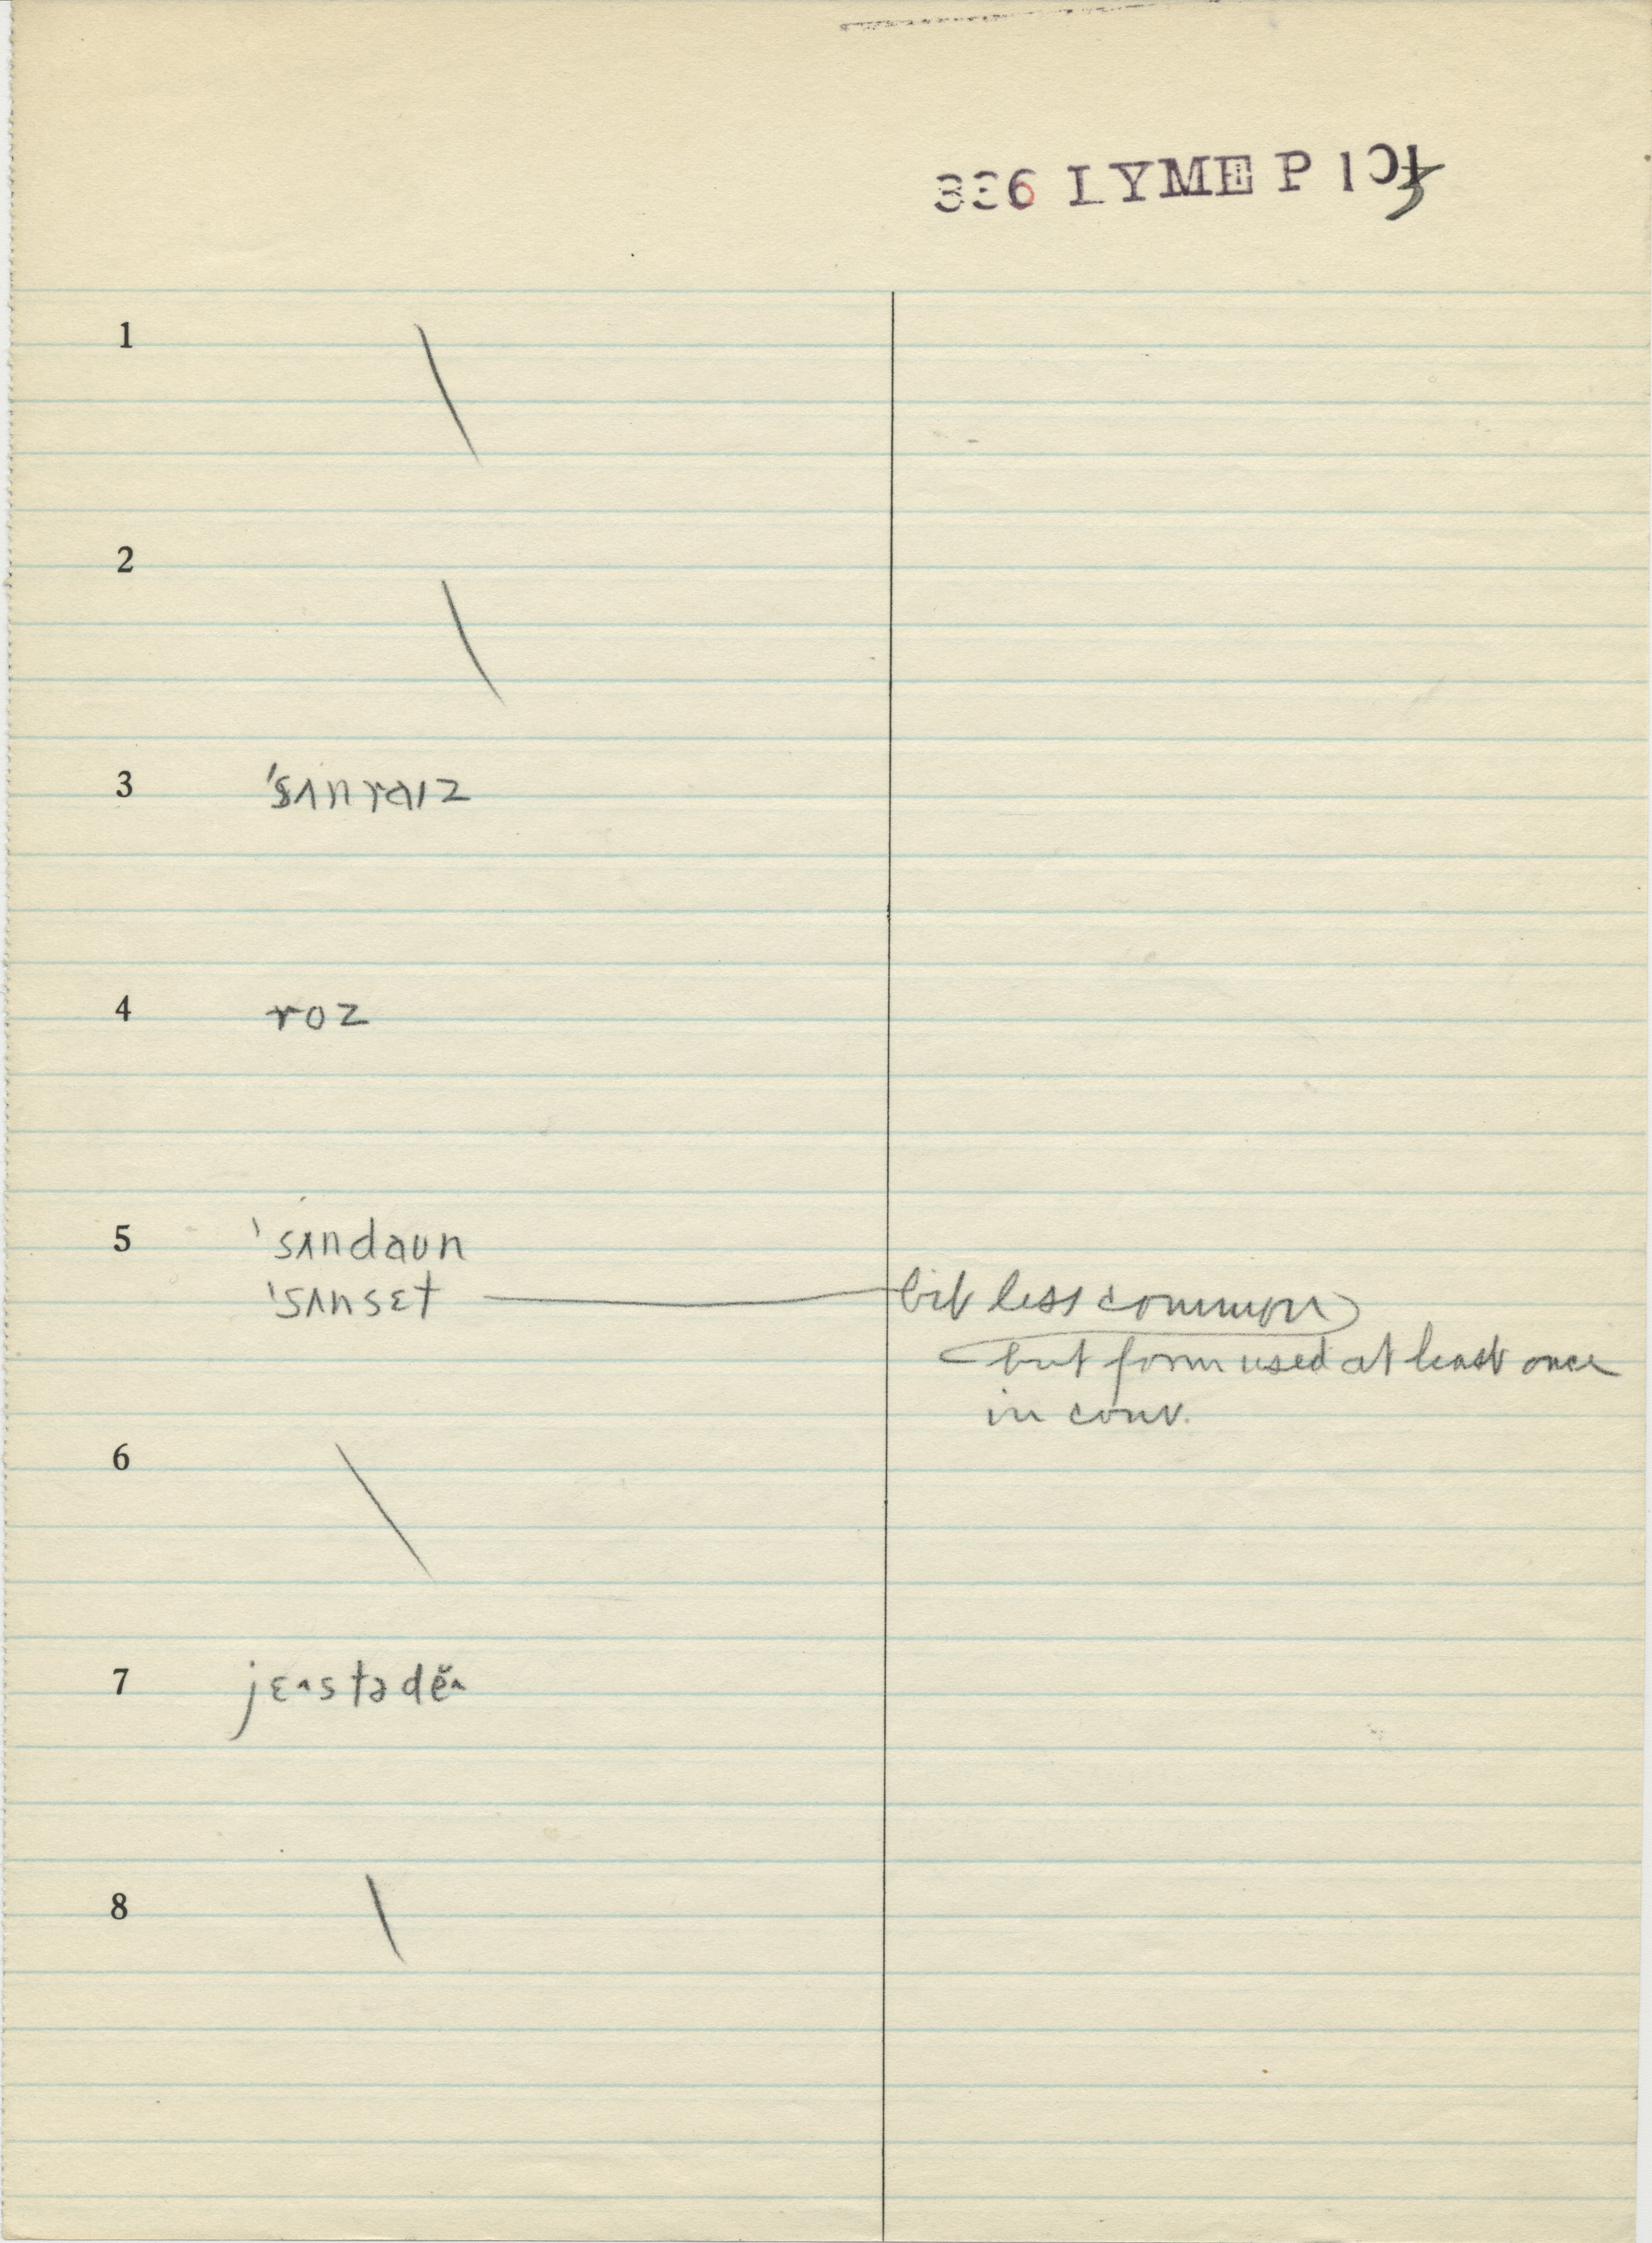 336 LYME P 103
1
2
3 ˈsʌnraɪz
4 roz
5 ˈsʌndaun
ˈsʌnsɛt bit less common
but form used at least once
in conv.
6
7 jɛ˄stədĕ˄
8